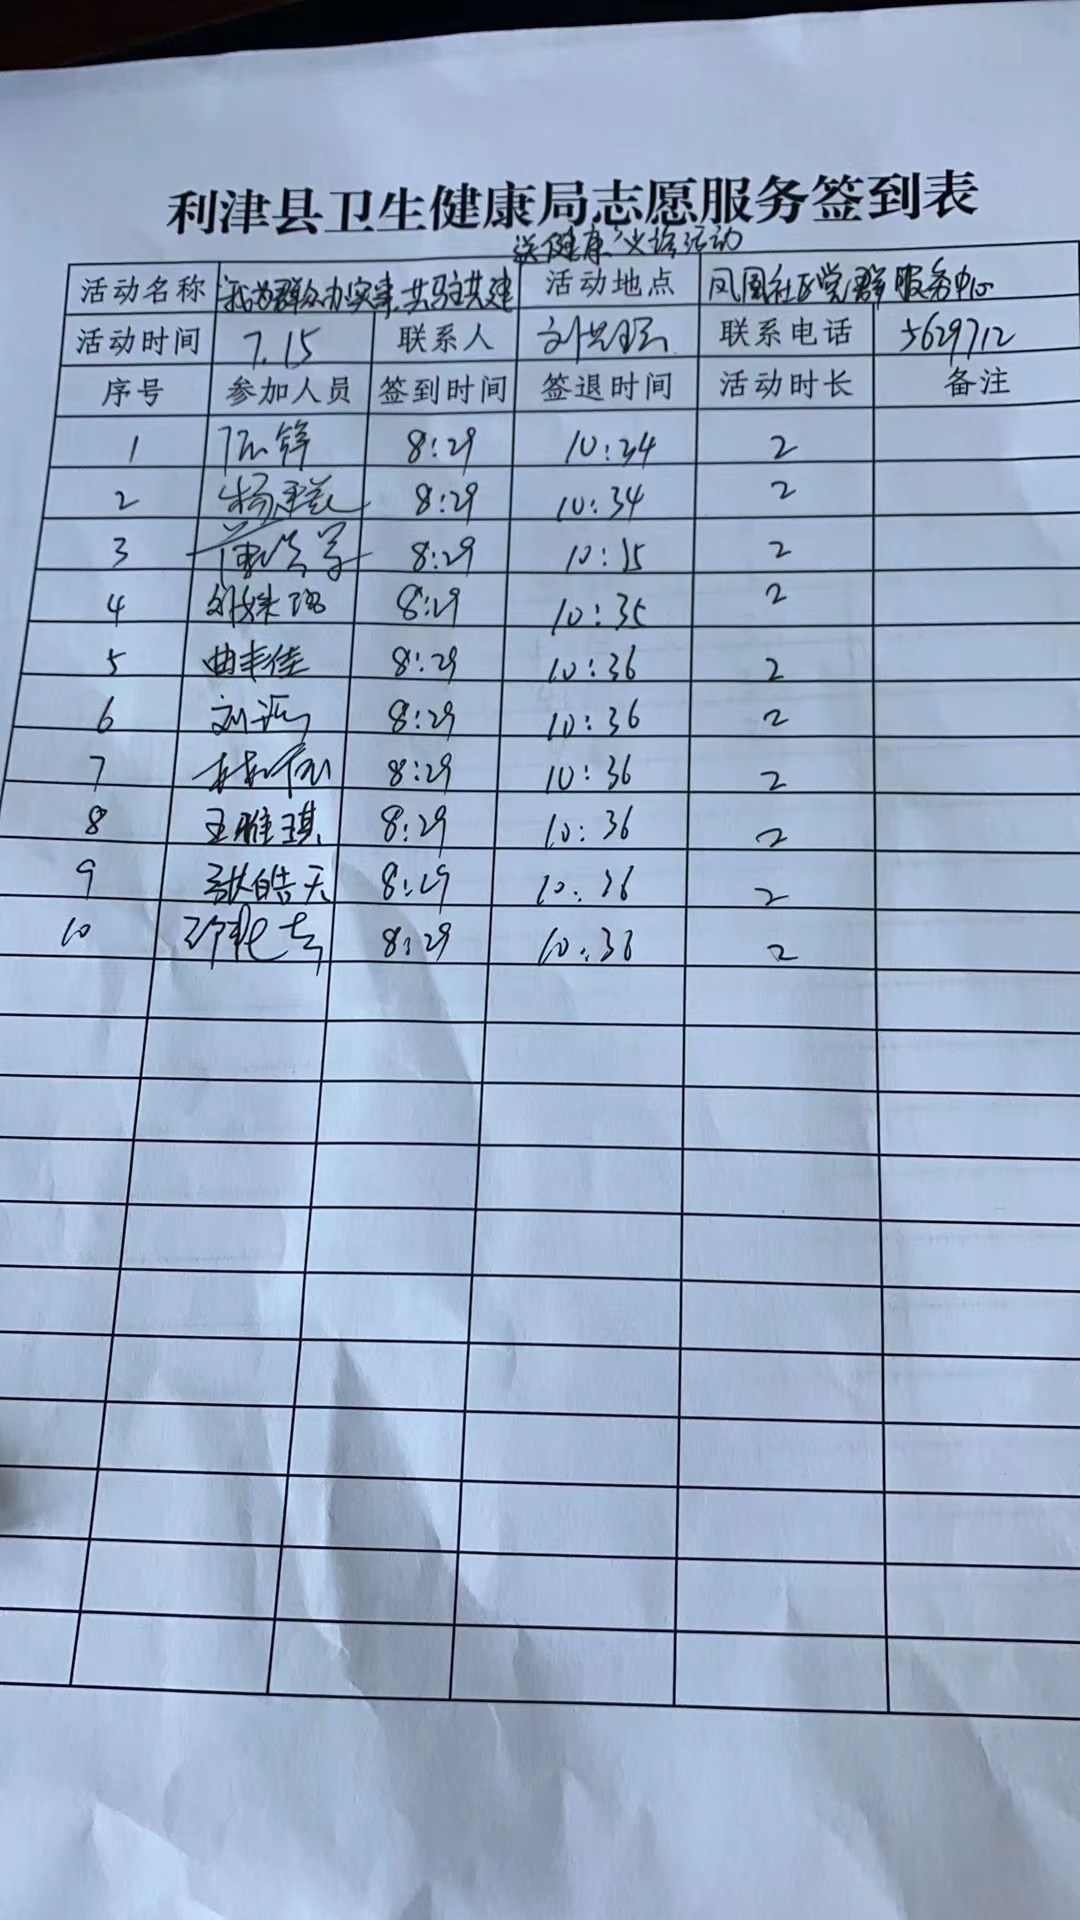 利津县卫生健康局志愿服务签到表
送健康”义诊活动
活动名称 我为群众办实事,共驻共建 活动地点 凤凰社区党群服务中心
活动时间 7.15 联系人 刘 联系电话 5629712
序号 参加人员 签到时间 签退时间 活动时长 备注
1 8:29 10:34 2
2 杨 8:29 10:34 2
3 8:29 10:35 2
4 8:29 10:35 2
5 曲丰佳 8:29 10:36 2
6 刘 8:29 10:36 2
7 8:29 10:36 2
8 王雅琪 8:29 10:36 2
9 皓天 8:29 10:36 2
10 8:29 10:36 2